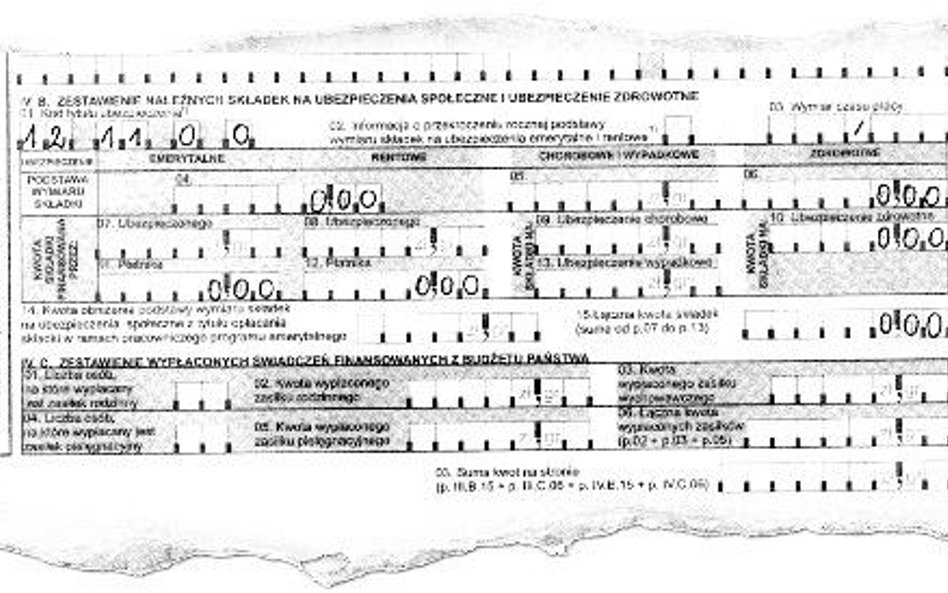 IV B. ZESTAWIENIE NALEŻNYCH SKŁADEK NA UBEZPIECZENIA SPOŁECZNE I UBEZPIECZENIE ZDROWOTNE
01. Kod tytułu ubezpieczenia
02. Informacja o przekroczeniu rocznej podstawy
wymiaru składek na ubezpieczenia emerytalne i rentowe
03. Wymiar czasu pracy
12 11 0 0
/
UBEZPIECZENIE EMERYTALNE RENTOWE CHOROBOWE I WYPADKOWE ZDROWOTNE
PODSTAWA
WYMIARU
SKŁADKI
04. 0,00
05. zł gr
06. 0,00
KWOTA
SKŁADKI
FINANSOWANA
PRZEZ:
07. Ubezpieczonego zł gr
08. Ubezpieczonego zł gr
KWOTA
SKŁADKI NA:
09. Ubezpieczenie chorobowe zł gr
KWOTA
SKŁADKI NA:
10. Ubezpieczenie zdrowotne 0,00
11. Płatnika 0,00
12. Płatnika 0,00
13. Ubezpieczenie wypadkowe zł gr
14. Kwota obniżenia podstawy wymiaru składek
na ubezpieczenia społeczne z tytułu opłacania
składki w ramach pracowniczego programu emerytalnego
zł gr
15. Łączna kwota składek
(suma od p.07 do p.13)
0,00
IV. C. ZESTAWIENIE WYPŁACONYCH ŚWIADCZEŃ FINANSOWANYCH Z BUDŻETU PAŃSTWA
01. Liczba osób,
na które wypłacany
jest zasiłek rodzinny
02. Kwota wypłaconego
zasiłku rodzinnego
zł gr
03. Kwota
wypłaconego zasiłku
wychowawczego
zł gr
04. Liczba osób,
na które wypłacany jest
zasiłek pielęgnacyjny
05. Kwota wypłaconego
zasiłku pielęgnacyjnego
zł gr
06. Łączna kwota
wypłaconych zasiłków
(p.02 + p.03 + p.05)
zł gr
03. Suma kwot na stronie
(p. III.B.15 + p. III.C.06 + p. IV.B.15 + p. IV.C.06)
zł gr